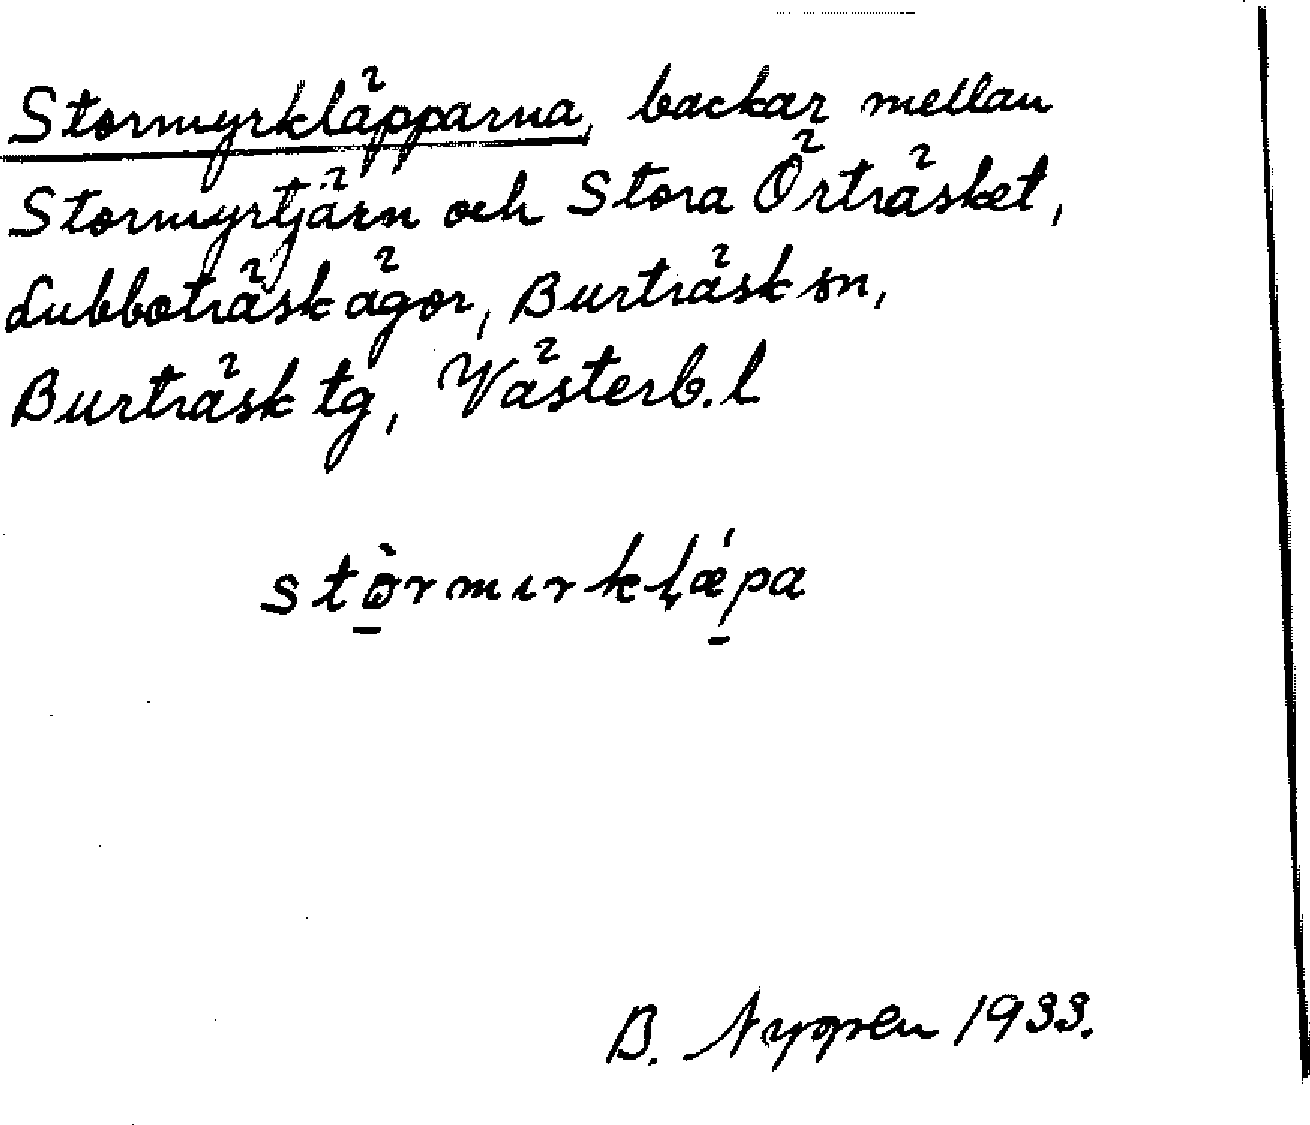 Stormyrkläpparna, backar mellan
Stormyrtjärn och Stora Örträsket,
Lubboträsk ägor, Burträsk sn,
Burträsk tg, Västerb. l
B. Nygren 1933.